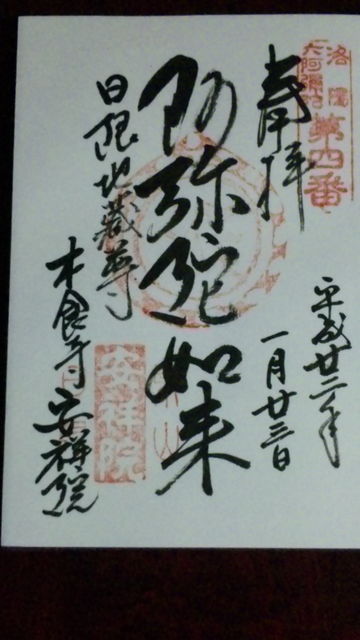 洛陽
六阿彌陀
第四番
奉拝
平成廿二年
一月廿三日
阿弥陀如来
日限地蔵尊
木食寺安祥院
安祥院